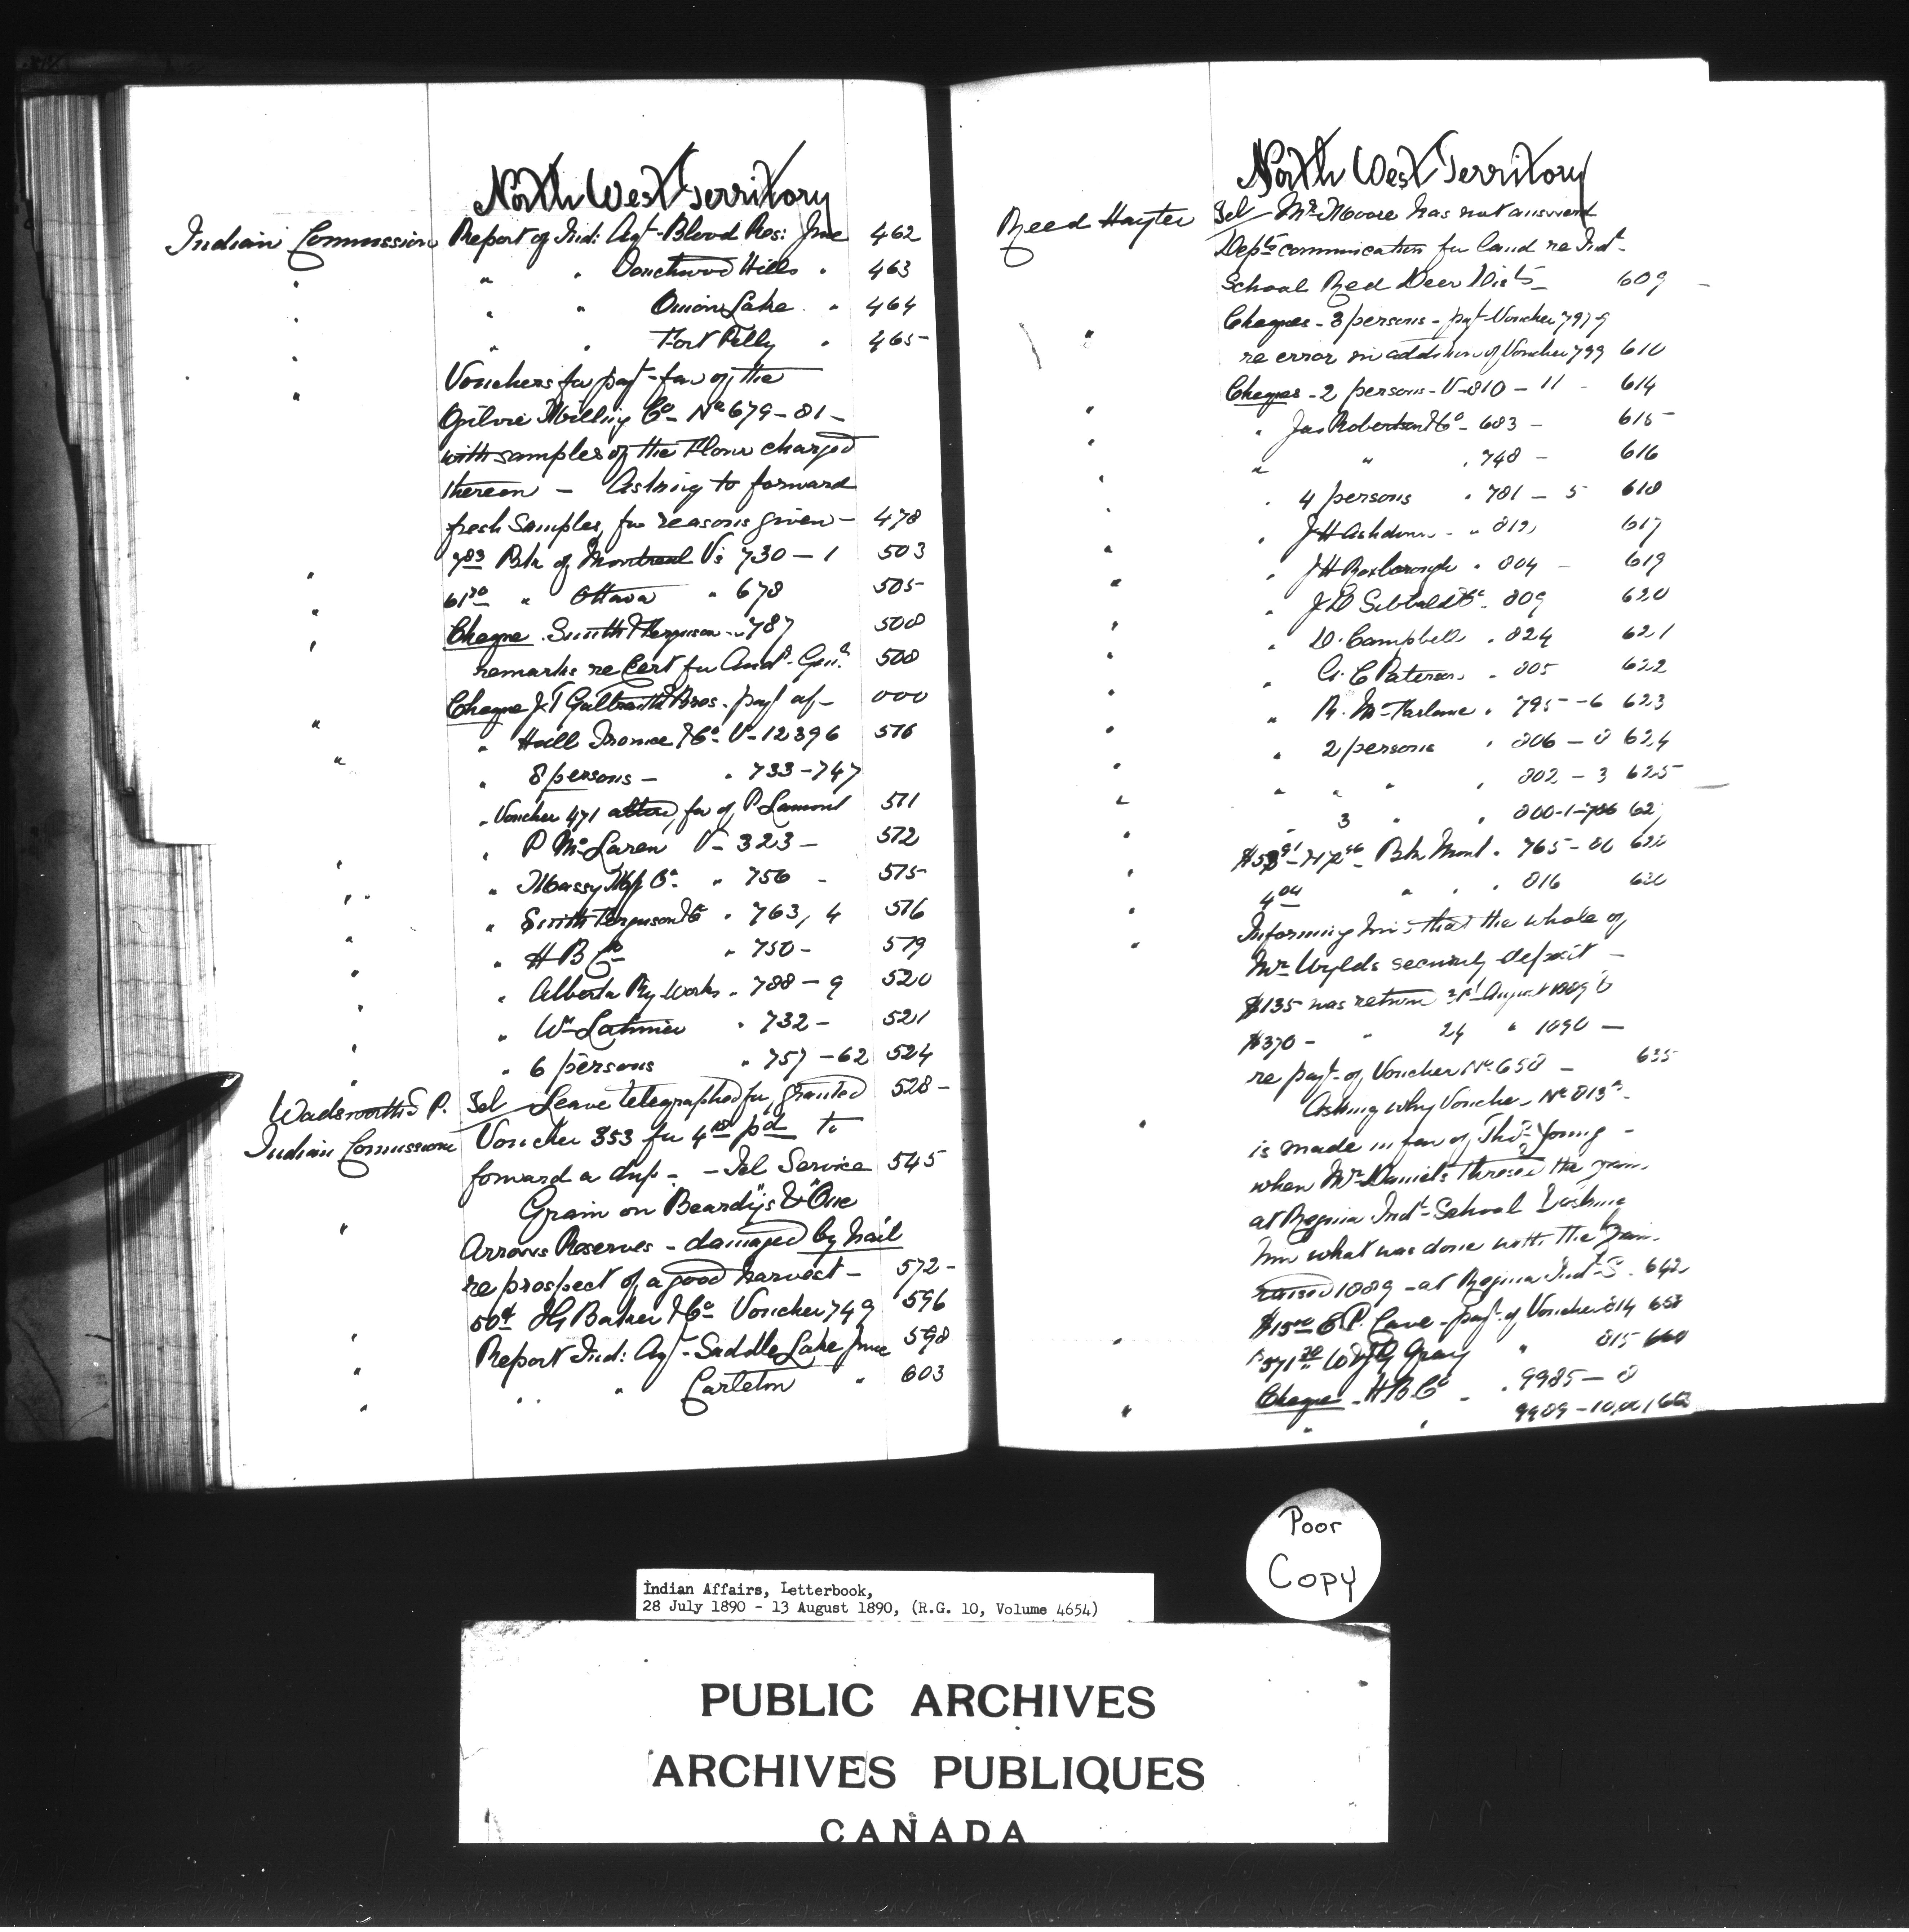 North West Territory
Indian Commission Report of Ind: Agt - Blood Res: June 462
" " " Touchwood Hills " 463
" " " Onion Lake " 464
" " " Fort Pelly " 465
" Vouchers for payt - fav of the
Ogilvie Milling Co - No 679 - 81 -
with samples of the Flour charged
thereon - Asking to forward
fresh Samples, for reasons given - 478
" 783 Bk of Montreal Vs 730 - 1 503
" " Ottawa " 678 505
" Cheque Smith & Ferguson - 787 508
remarks re Cert for Aud. Genl 508
" Cheque J T Galbraith Bros. payt
" " Hull V - 12396 516
" 8 persons - " 733 - 747
" Voucher 471 fav of P Lamont 511
" " P McLaren V - 323 - 512
" " Massey Mfg Co. " 756 - 515
" " Smith Ferguson & Co " 763, 4 516
" " H B Co " 750 - 519
" " Alberta Ry Works " 788 - 9 520
" " Wm Latimer " 732 - 521
" " 6 persons " 757 - 62 524
Wadsworth P. Tel - Leave telegraphed for, granted 528 -
Indian Comissione Voucher 353 for pd to
forward a dup - - Tel Service 545
" Grain on Beardy's & "One
Arrows Reserves - damaged by hail
re prospect of a good harvest - 572 -
" 50¢ I G Baker & Co Voucher 749 596
" Report Ind: Agt - Saddle Lake June 598
" " " Carleton " 603
North West Territory
Reed Hayter Tel - Mr Moore has not answered
Depts communication for land re Indt -
School Red Deer Dist - 609 -
" Cheques - 3 persons - payt Voucher 797-9
re error in addition of Voucher 799 610
" Cheques - 2 persons - V - 810 - 11 - 614
" " Jas Robertson & Co - 683 - 615
" " " 748 - 616
" " 4 persons " 781 - 5 618
" " J H Ashdown - " 812, 617
" " J H Roxborough " 804 - 619
" " J D Sibbald & Co " 809 620
" " D. Campbell " 824 621
" " G. C Paterson " 805 622
" " R. McFarlane " 795 - 6 623
" " 2 persons " 806 - 8 624
" " " " " 802 - 3 625
" " 3 " " 800 - 1 - 786 62
" Bk Mont. 765 - 628
" " " " 816 630
" Informing him that the whole of
Mr Wylds security deposit -
$135 was return 31st August 1889 &
$370 - " 24 " 1890 -
re payt - of Voucher No 658 - 635
" Asking why Voucher No 813
is made in fav of Thos Young -
when Mr Daniels thresed the grain
at Regina Indt - School &asking
him what was done with the grain
raised 1889 - at Regina Indt S. 642
" $15 E P. Cave - payt of Voucher 814 658
" $571 W J Gray " 815 660
" Cheque - H B Co - " 9985 - 8
" " 9989 - 662
Poor
Copy
Indian Affairs, Letterbook,
28 July 1890 - 13 August 1890, (R.G. 10, Volume 4654)
PUBLIC ARCHIVES
ARCHIVES PUBLIQUES
CANADA